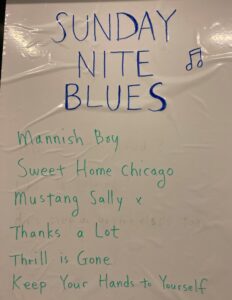 SUNDAY
NITE
BLUES
Mannish Boy
Sweet Home Chicago
Mustang Sally x
Thanks a Lot
Thrill is Gone
Keep Your Hands to Yourself